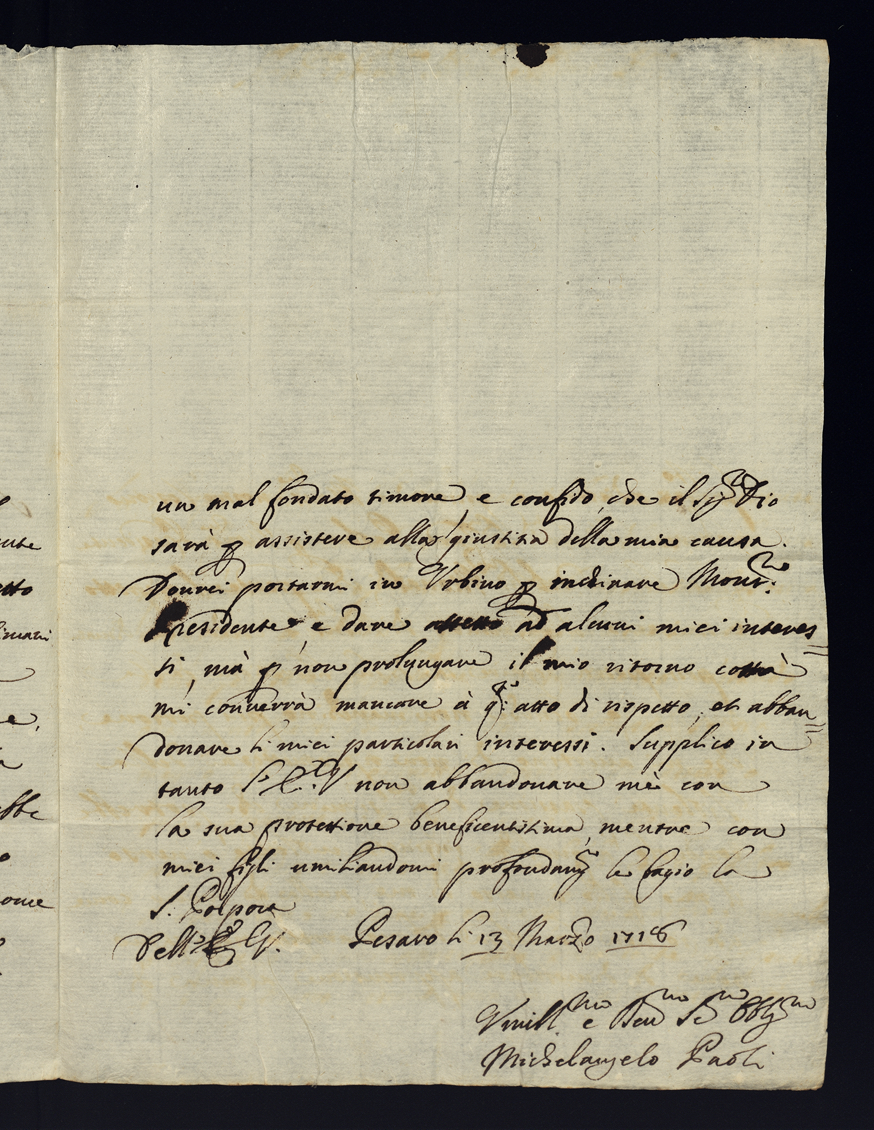 un mal fondato timore, e confido, che il Sig.r Dio
sarà p assistere alla giustitia della mia causa.
Dourei portarmi in Vrbino p inchinare Mons.re
Presidente e dare assetto ad alcuni miei interes=
si, mà p non prolungare il mio ritorno costà
mi conuerrà mancare à q.o atto di rispetto, et abban=
donare li miei particolari interessi. Supplico in
tanto l' E. V non abbandonare mè con
la sua protettione beneficentissima, mentre con
miei figli umiliandomi profondam.e le bagio la
S. Porpora
Dell' E. V. Pesaro li 13 Marzo 1718
Vmill.mo e Deu.mo Se.re Obblig.mo
Michelangelo Paoli
ente
etto
e,
ebbe
ome